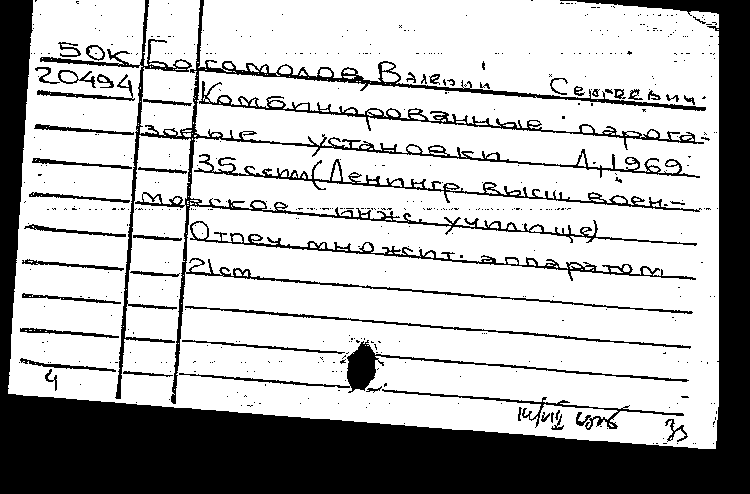 50К Богомолов, Валерий Сергеевич.
20494 Комбинированные парога-
зовые установки. Л., 1969
35 с. (Ленингр. высш. воен.-
морское инж. училище)
Отпеч. множит. аппаратом
21 см.
4